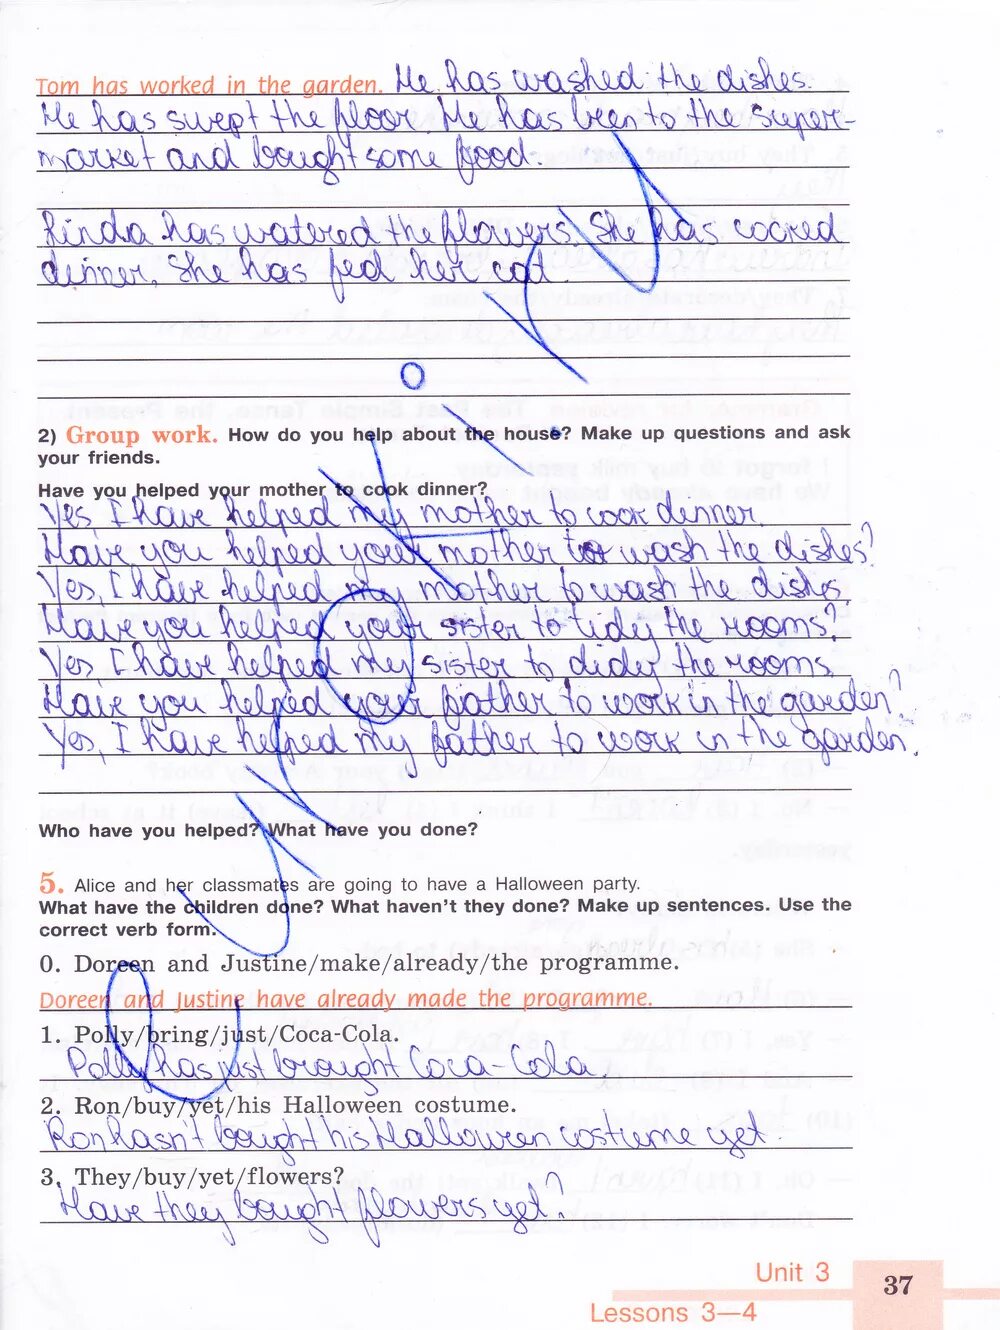 Tom has worked in the garden. He has washed the dishes.
He has swept the floor. He has been to the super-
market and bought some food.
Linda has watered the flowers. She has cocred
dinner. She has fed her cat
2) Group work. How do you help about the house? Make up questions and ask
your friends.
Have you helped your mother to cook dinner?
Yes, I have helped my mother to cook dinner.
Have you helped your mother to wash the dishes?
Yes, I have helped my mother to wash the dishes.
Have you helped your sister to tidy the rooms?
Yes, I have helped my sister to didy the rooms.
Have you helped your father to work in the garden?
Yes, I have helped my father to work in the garden.
Who have you helped? What have you done?
5. Alice and her classmates are going to have a Halloween party.
What have the children done? What haven't they done? Make up sentences. Use the
correct verb form.
0. Doreen and Justine/make/already/the programme.
Doreen and Justine have already made the programme.
1. Polly/bring/just/Coca-Cola.
Polly has just brought Coca-Cola.
2. Ron/buy/yet/his Halloween costume.
Ron hasn't bought his Halloween costume yet.
3. They/buy/yet/flowers?
Have they bought flowers yet?
Unit 3
37
Lessons 3—4